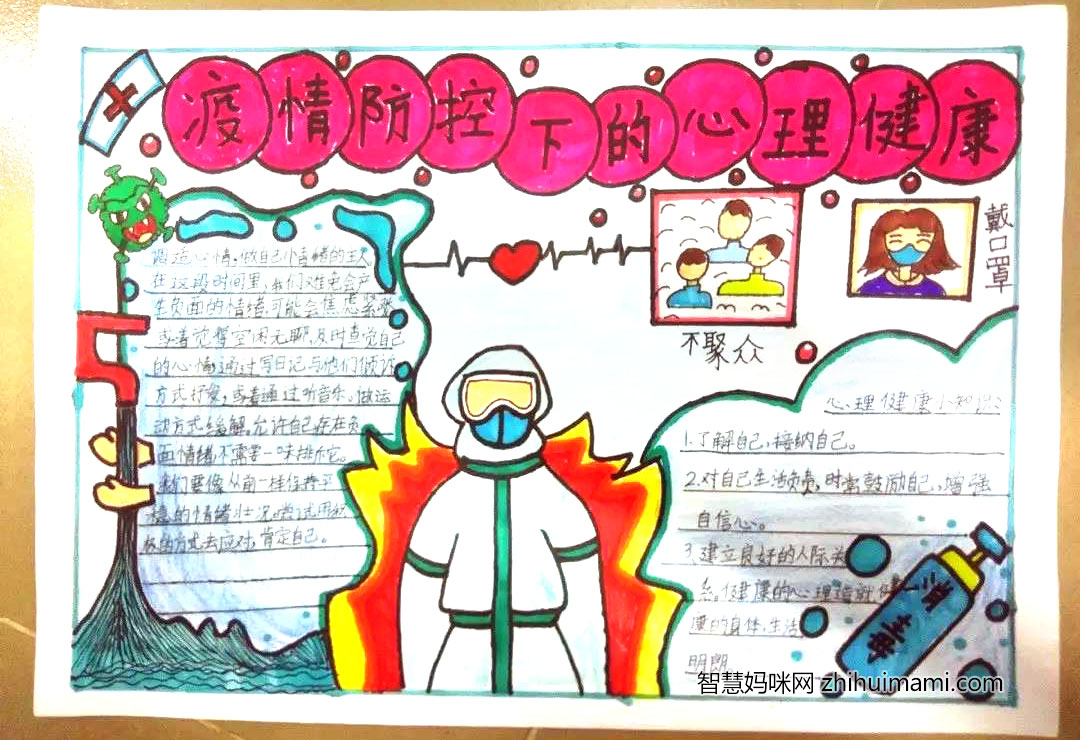 疫情防控下的心理健康
调适心情,做自己情绪的主人
在这段时间里,我们难免会产
生负面的情绪,可能会焦虑紧张
或者觉得空闲无聊,及时查觉自己
的心情通过写日记与他们倾诉
方式抒发,或者通过听音乐、做运
动方式缓解。允许自己存在负
面情绪,不需要一味排斥它。
我们要像从前一样保持平
稳的情绪状况,尝试用积
极的方式去应对,肯定自己。
不聚众
戴口罩
心理健康小知识:
1.了解自己,接纳自己。
2.对自己生活负责,时常鼓励自己,增强
自信心。
3.建立良好的人际关
系。健康的心理造就健
康的身体,生活
明朗。
消毒
智慧妈咪网 zhihuimami.com